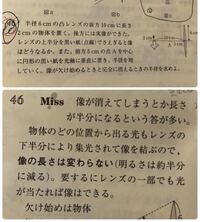 図a
図b
半径6cmの凸レンズの前方10cmに長さ
2cmの物体を置くと，後方には実像ができた。
レンズの上半分を黒い紙(点線)でさえぎると像は
どうなるか。また，前方5cmの点Aを中心
に円形の黒い紙を光軸に垂直に置き，半径を増
していく。像が欠け始めるときと完全に消えるときの半径を求めよ。
46 Miss 像が消えてしまうとか長さ
が半分になるという答が多い。
物体のどの位置から出る光もレンズの
下半分により集光されて像を結ぶので，
像の長さは変わらない(明るさは約半分
に減る)。要するにレンズの一部でも光
が当たれば像はできる。
欠け始めは物体